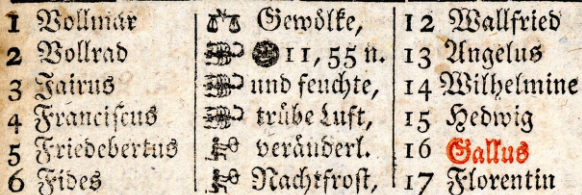 1 Vollmar Gewölke, 12 Wallfried
2 Vollrad 11, 55 n. 13 Angelus
3 Jairus und feuchte, 14 Wilhelmine
4 Franciscus trübe Luft, 15 Hedwig
5 Friedebertus veränderl. 16 Gallus
6 Fides Nachtfrost, 17 Florentin